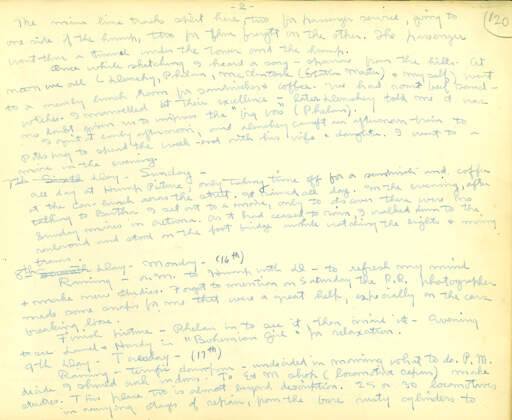 - 2 -
120
The main line tracks split here, two for passenger service, going to
one side of the hump, two for thru freight on the other. The passenger
went thru a tunnel under the tower and the hump.
Once while sketching I heard a song - sparrow from the hills. At
noon we all (Blenchey, Phelan, McClintock (Station Master) & myself) went
to a nearby lunch room for sandwiches & coffee. We had roast beef sand-
wiches. I marvelled at their excellence - later told me it was
no doubt given us to impress the "big boss" (Phelan).
I quit early afternoon, and caught an afternoon train to
Pittsburg to spend the week-end with his wife & daughter. I went to a
movie in the evening.
7th Day - Sunday -
all day at Hump Picture, only taking time off for a sandwich and coffee
at the car-lunch across the street. at all day. In the evening, after
talking to Bertha I set out to a movie, only to discover there were no
Sunday movies in Altoona. As it had ceased to rain, I walked down to the
railroad and stood on the foot bridge awhile watching the lights & moving
trains.
8th Day - Monday - (16th)
Raining - a.m. to Hump with - to refresh my mind
& make new studies. Forgot to mention on Saturday the R.R. photographer
made some snaps for me that were a great help, especially on the cars
breaking loose.
Finish picture - Phelan in to see it then mine it - Evening
to see Laurel & Hardy in "Bohemian Girl" for relaxation.
9th Day - Tuesday - (17th)
Raining - terrific downpour - undecided in morning what to do. P.M.
decide I should work indoors. To E & M shop (locomotive repair) make
studies. This place too is almost beyond description. 25 or 30 locomotives
in varying stages of repair, from the bare rusty cylinders to